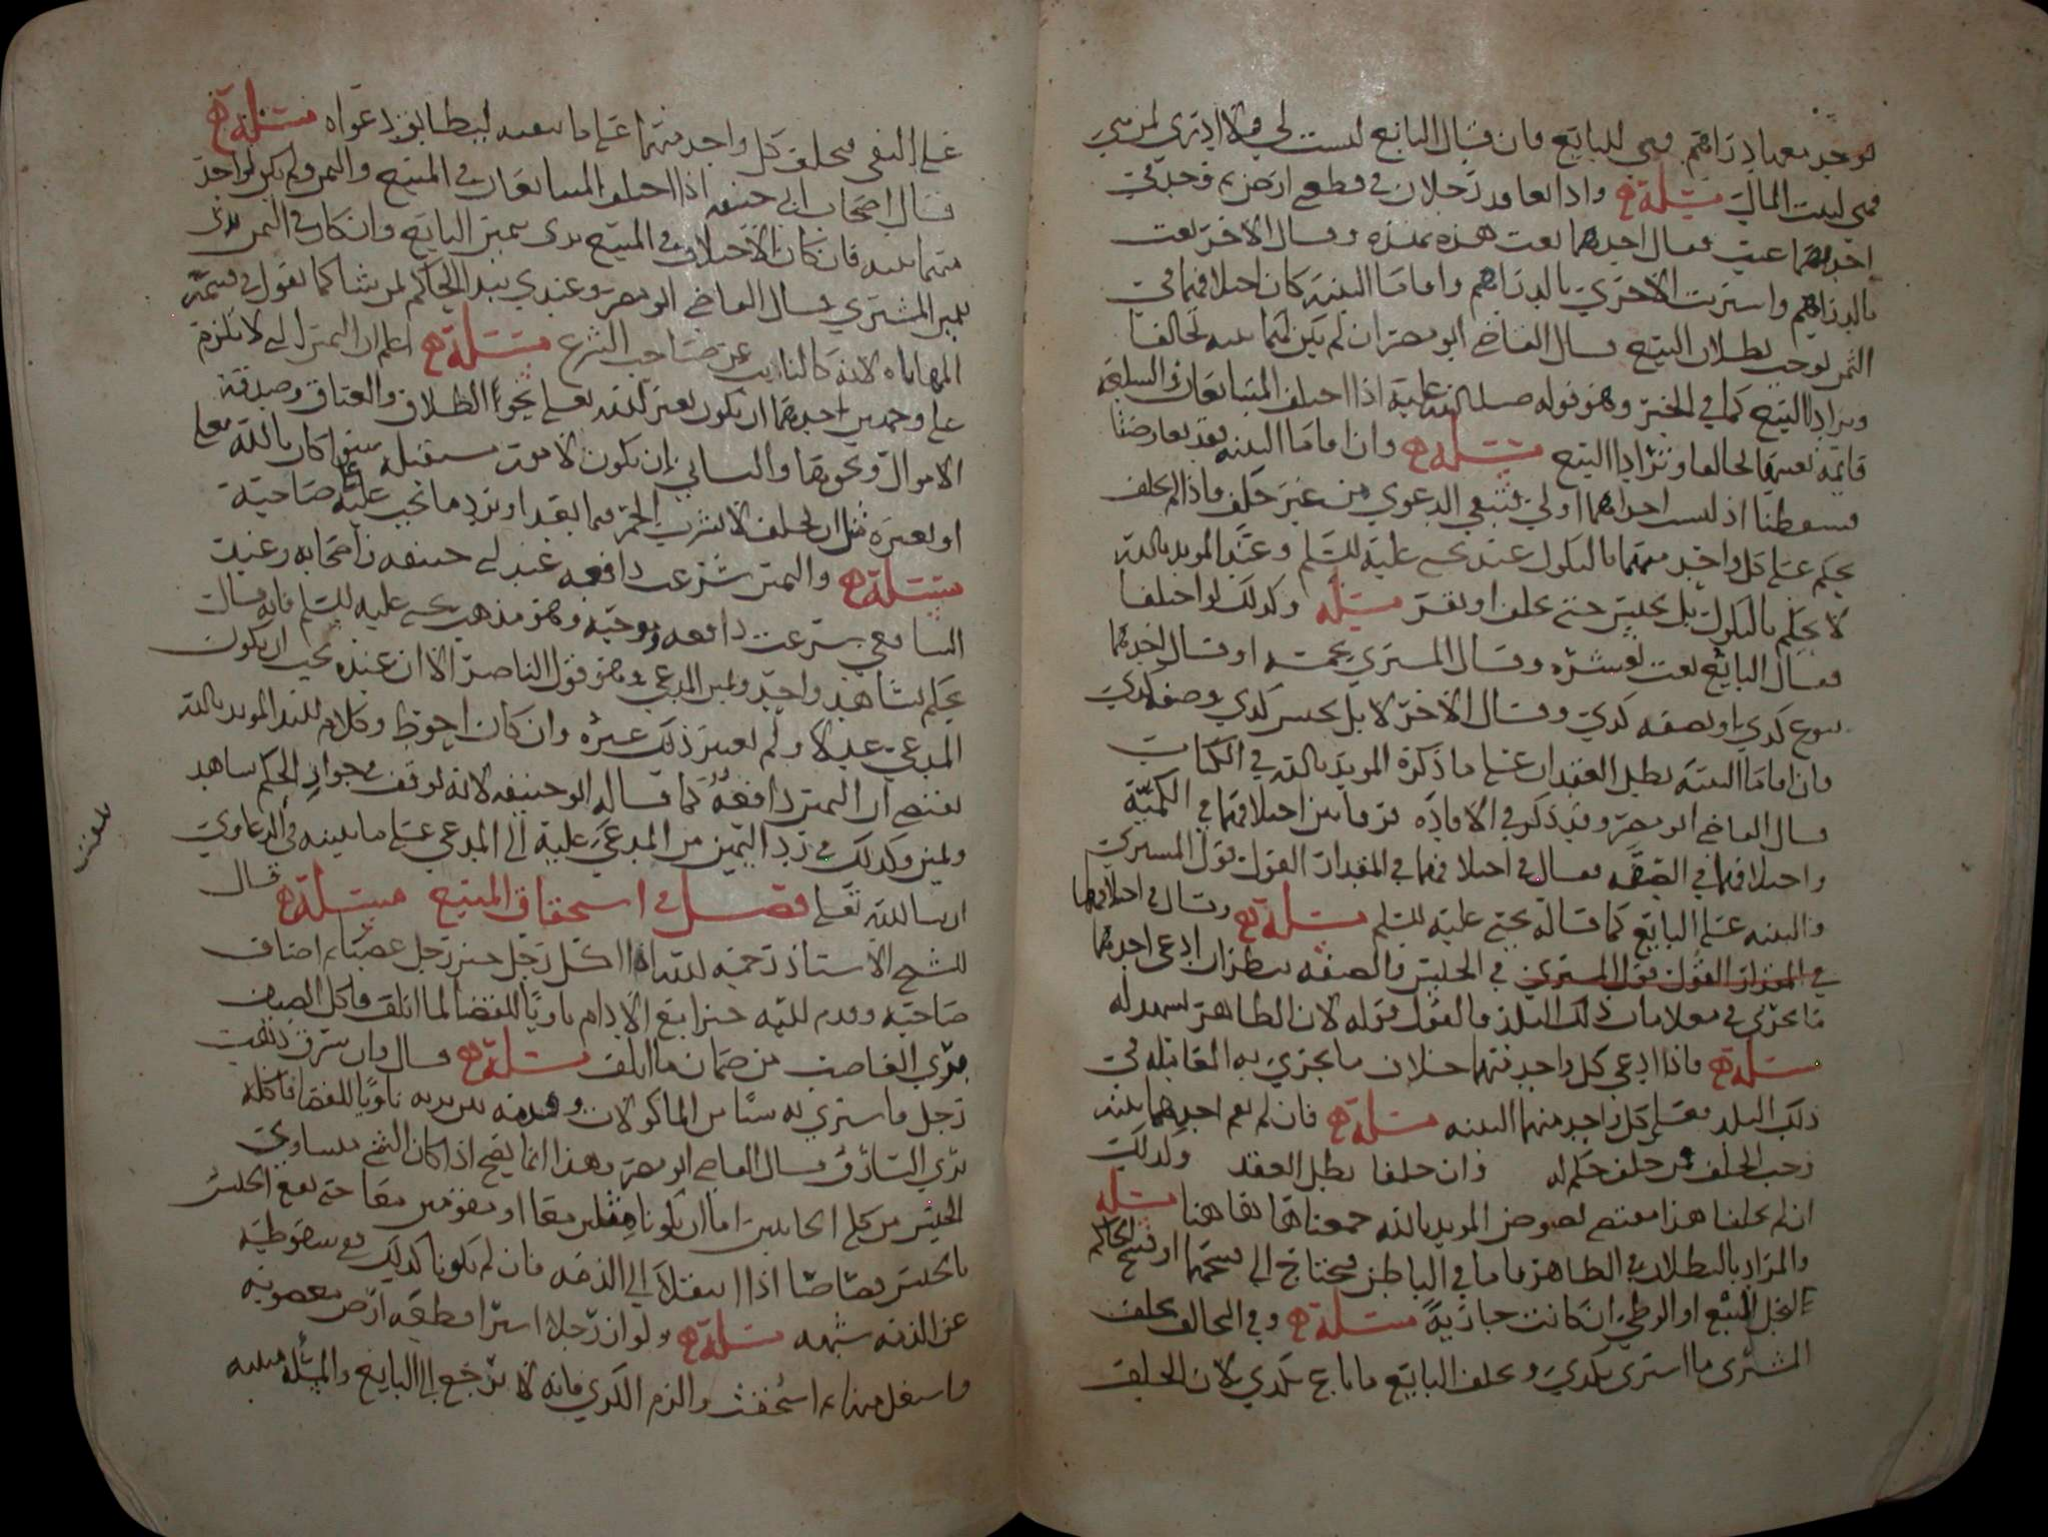 يوجد معها دراهم فهي للبايع فان قال البايع ليست لي ولا ادري لمن هي
فهي لبيت المال مسئلة واذا تعاقد رجلان في قطع ارض وحد في
احدهما عيب فقال احدهما بعت هذه بهذه وقال الاخر بعت
بالدراهم واشتريت الاخرى بالدراهم واقاما البينة كان اختلافهما في
الثمن يوجب بطلان البيع قال القاضي ابو مضر ان لم يكن لهما بينة تحالفا
وترادا البيع كما في الخبر وهو قوله صلى الله عليه اذا اختلف المتبايعان والسلعة
قايمة بعينها تحالفا وترادا البيع مسئلة وان اقاما البينة فقد تعارضتا
فسقطتا اذ ليست احداهما اولى فتبقى الدعوى من غير حلف فاذا لم يحلف
يحكم على كل واحد منهما بالنكول عند يحيى عليه السلم وعند المويد بالله
لا يحكم بالنكول بل يحبس حتى يحلف او يقر مسئلة وكذلك لو اختلفا
فقال البايع بعت بعشرة وقال المشتري بخمسة او قال احدهما
بنوع كذي او بصفه كذي وقال الاخر لا بل بجنس كذي وصفه كذي
فان اقاما البينة بطل العقدان على ما ذكره المويد بالله في الكتاب
قال القاضي ابو مضر وقد ذكر في الافادة فرقا بين اختلافهما في الكمية
واختلافهما في الصفه فقال في اختلافهما في المقدار القول قول المشتري
والبينه على البايع كما قاله يحيى عليه السلم مسئلة وقال في اختلافهما
في المقدار القول قول المشتري في الجنس والصفه ينظر ان ادعى احدهما
ما يجري في معاملات ذلك البلد فالقول قوله لان الظاهر يشهد له
مسئلة فاذا ادعى كل واحد منهما خلاف ما يجري به المعاملة في
ذلك البلد فعلى كل واحد منهما البينه مسئلة فان لم يقم احدهما بينه
وجب الحلف فمن حلف حكم له وان حلفا بطل العقد وكذلك
ان لم يحلفا هذا مقتضى نصوص المويد بالله جمعناها هاهنا مسئلة
والمراد بالبطلان في الظاهر فاما في الباطن فيحتاج الى فسخهما او فسخ الحاكم
ليحل المبيع او الوطئ ان كانت جارية مسئلة وفي التحالف يحلف
المشتري ما اشترى بكذي ويحلف البايع ما باع بكذي لان الحلف
على النفي فيحلف كل واحد منهما على ما ينفيه ليطابق دعواه مسئلة
قال اصحاب ابي حنيفه اذا اختلف المتبايعان في المبيع والثمن ولم يكن لواحد
منهما بينه فان كان الاختلاف في المبيع بدى بيمين البايع وان كان في الثمن بدى
بيمين المشتري قال القاضي ابو مضر وعندي يبدا الحاكم بمن شا كما نقول في قسمة
المهاياه لانه كالنايب عن صاحب الشرع مسئلة اعلم ان اليمين التي لا تلزم
على وجهين احدهما ان يكون بغير الله تعالى نحو الطلاق والعتاق وصدقة
الاموال ونحوها والثاني ان يكون لامور مستقبله سوا كان بالله تعالى
او بغيره مثل ان يحلف لا يشرب الخمر فيما بعد او يرد ما يجب عليه صاحبه
مسئلة واليمين شرعت دافعه عند ابي حنيفه واصحابه وعند
الشافعي شرعت دافعه وموجبة وهو مذهب يحيى عليه السلم فانه قال
يحكم بشاهد واحد ويمين المدعي وهو قول الناصر الا ان عنده يجب ان يكون
المدعي عدلا ولم يعتبر ذلك غيره وان كان احوط وكلام السيد المويد بالله
يقتضي ان اليمين دافعة كما قاله ابو حنيفه لانه توقف في جواز الحكم بشاهد
ويمين وكذلك في رد اليمين من المدعى عليه الى المدعي على ما نبينه في الدعاوي
ان شا الله تعالى فصل في استحقاق المبيع مسئلة قال
الشيخ الاستاذ رحمه الله اذا اكل رجل خبز رجل غصبا ثم اضاف
صاحبه وقدم اليه خبزا مع الادام ناويا للقضا لما اتلف فاكل الضيف
بري الغاصب من ضمان ما اتلف مسئلة قال وان سرق ذهب
رجل فاشترى به شيا من الماكولات وقدمه بين يديه ناويا للقضا فاكله
بري السارق قال القاضي ابو مضر وهذا انما يصح اذا كان الشي متساوي
الجنس من كلي الجانبين اما ان يكونا مثلين معا او مقومين معا حتى يقع الجنس
بالجنس قصاصا اذا انتقلا الى الذمه فان لم يكونا كذلك ففي سقوطه
عن الذمه شبهه مسئلة ولو ان رجلا اشترا قطعه ارض مغصوبه
واستغل منها ثم استحقت والزم الكري فانه لا يرجع الى البايع والمسئلة مبنيه